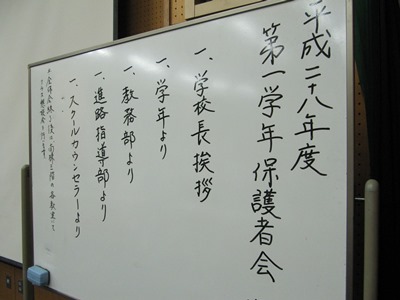 平成二十八年度
第一学年保護者会
一、学校長挨拶
一、学年より
一、教務部より
一、進路指導部より
一、スクールカウンセラーより